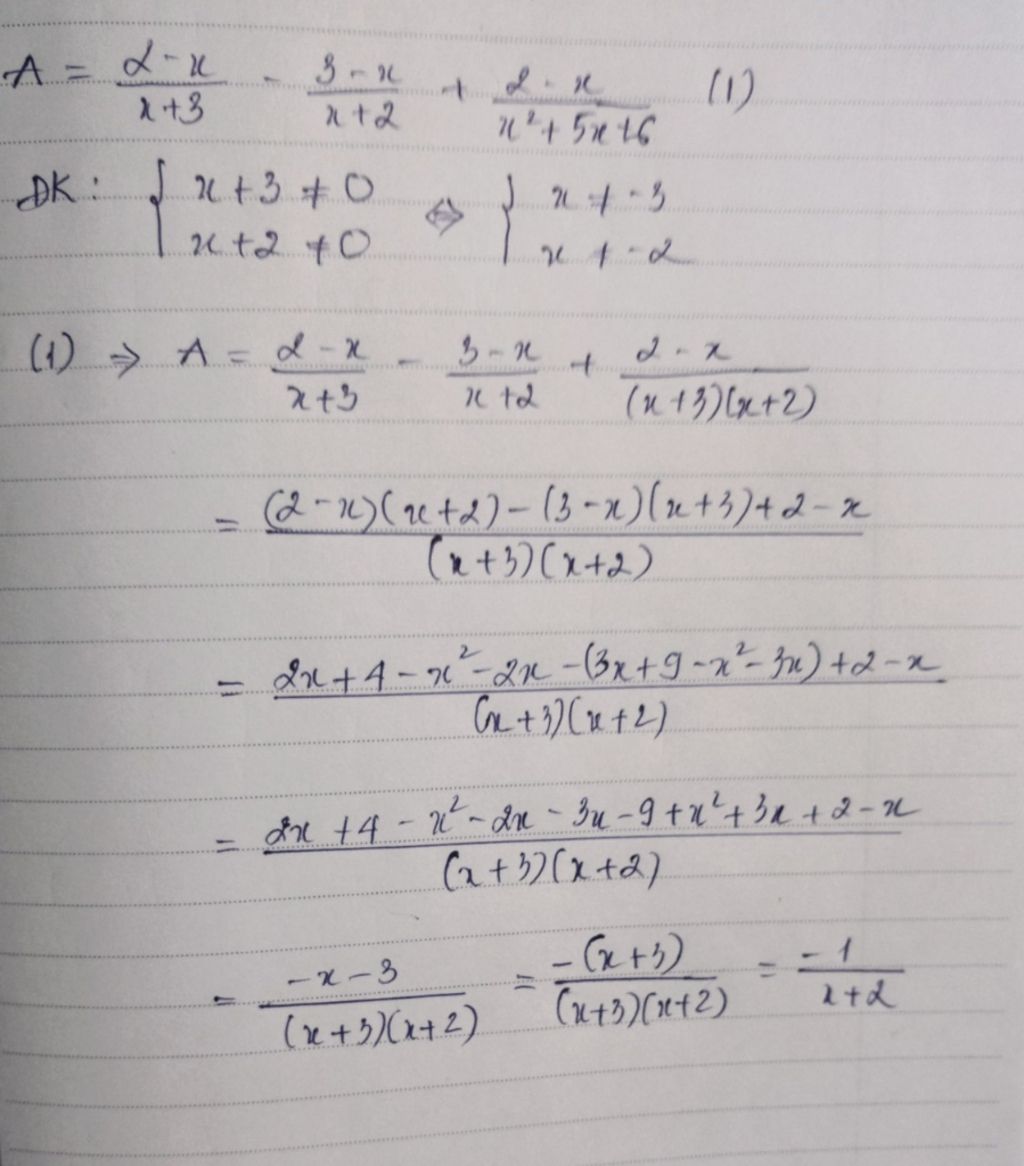 A = \frac{2-x}{x+3} - \frac{3-x}{x+2} + \frac{2-x}{x^2+5x+6} (1)
ĐK: \begin{cases} x+3 \neq 0 \\ x+2 \neq 0 \end{cases} \Leftrightarrow \begin{cases} x \neq -3 \\ x \neq -2 \end{cases}
(1) \Rightarrow A = \frac{2-x}{x+3} - \frac{3-x}{x+2} + \frac{2-x}{(x+3)(x+2)}
= \frac{(2-x)(x+2)-(3-x)(x+3)+2-x}{(x+3)(x+2)}
= \frac{2x+4-x^2-2x-(3x+9-x^2-3x)+2-x}{(x+3)(x+2)}
= \frac{2x+4-x^2-2x-3x-9+x^2+3x+2-x}{(x+3)(x+2)}
= \frac{-x-3}{(x+3)(x+2)} = \frac{-(x+3)}{(x+3)(x+2)} = \frac{-1}{x+2}